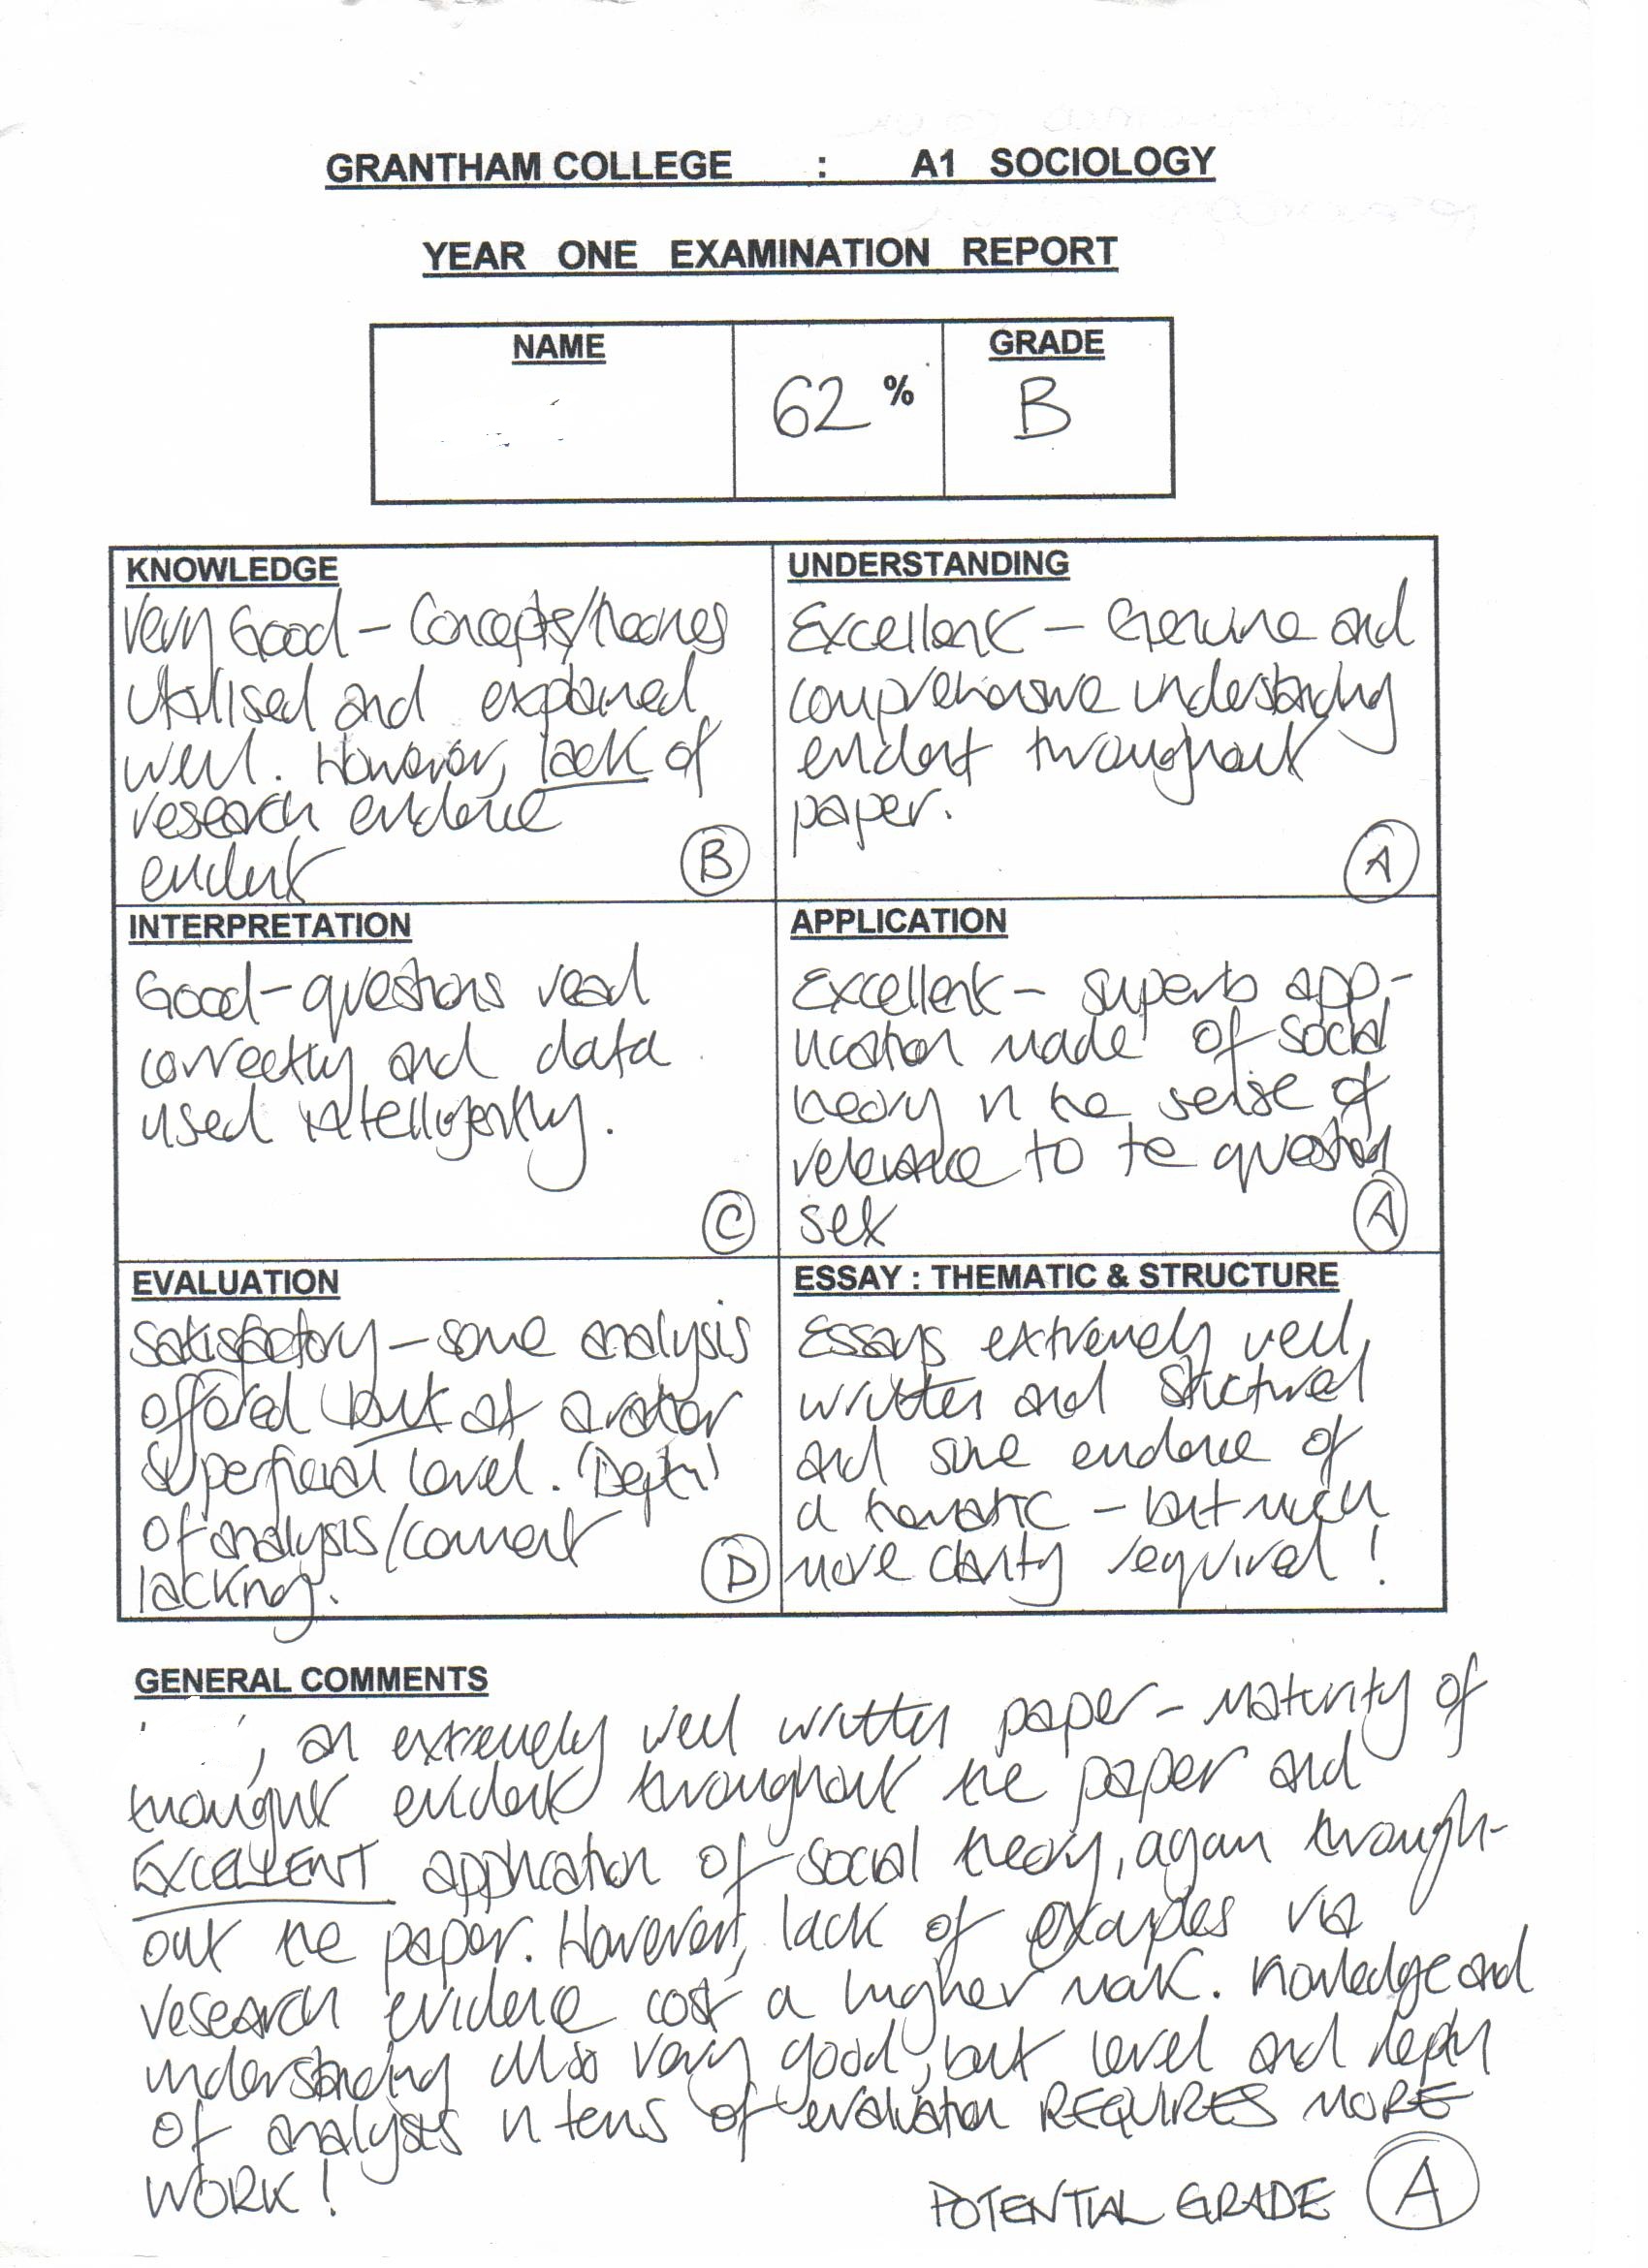 GRANTHAM COLLEGE : A1 SOCIOLOGY
YEAR ONE EXAMINATION REPORT
NAME
62 %
GRADE
B
KNOWLEDGE
Very Good - Concepts/theories
utilised and explained
well. However, lack of
research evidence
evident
B
UNDERSTANDING
Excellent - Genuine and
comprehensive understanding
evident throughout
paper.
A
INTERPRETATION
Good - questions read
correctly and data
used intelligently.
C
APPLICATION
Excellent - superb app-
lication made of social
theory in the sense of
relevance to the question
set
A
EVALUATION
Satisfactory - some analysis
offered but at a rather
superficial level. (Depth)
of analysis/comment
lacking.
D
ESSAY : THEMATIC & STRUCTURE
Essays extremely well
written and structured
and some evidence of
a thematic - but much
more clarity required!
GENERAL COMMENTS
, an extremely well written paper - maturity of
thought evident throughout the paper and
EXCELLENT application of social theory, again through-
out the paper. However, lack of examples via
research evidence cost a higher mark. Knowledge and
understanding also very good, but level and depth
of analysis in terms of evaluation REQUIRES MORE
WORK!
POTENTIAL GRADE A